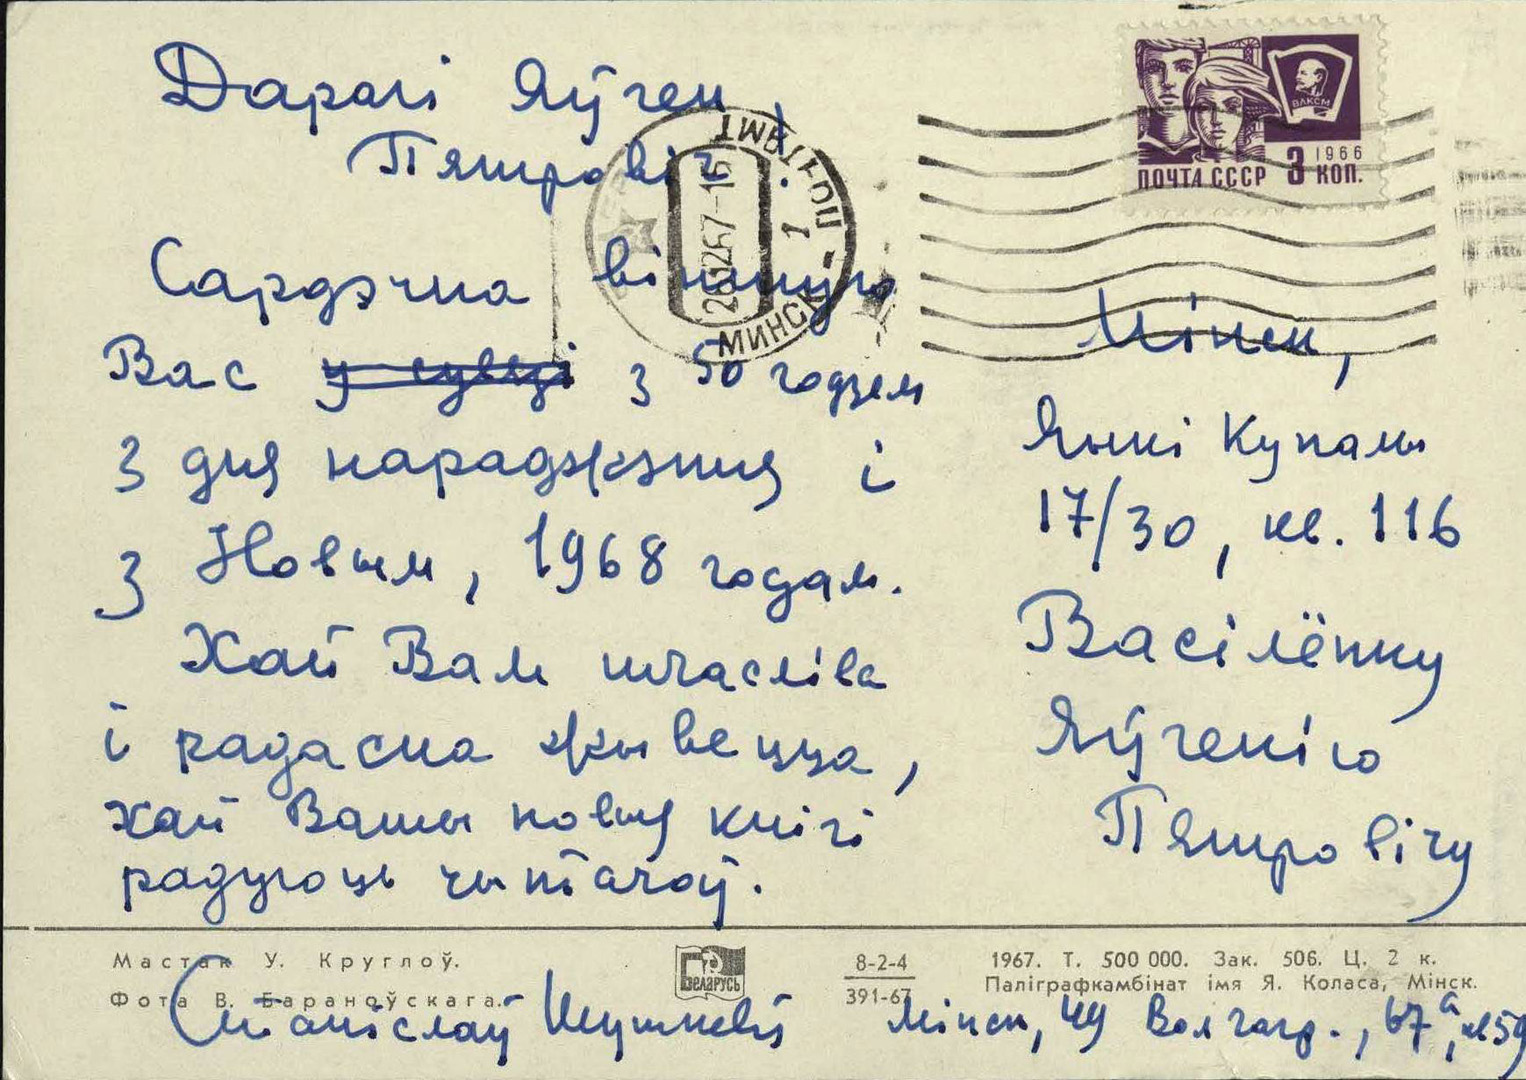 Дарагі Яўген
Пятровіч!
Сардэчна віншую
Вас у сувязі з 50 годзем
з дня нараджэння і
з Новым, 1968 годам.
Хай Вам шчасліва
і радасна жывецца,
хай Вашы новыя кнігі
радуюць чытачоў.
Станіслаў Шушкевіч
Мінск, 49 Волгагр., 67а, кв 59
ВЛКСМ
1966
ПОЧТА СССР 3 КОП.
МИНСК - ПОЧТАМТ
1
281267-16
Мінск,
Янкі Купалы
17/30, кв. 116
Васілёнку
Яўгенію
Пятровічу
Мастак У. Круглоў.
Фота В. Бараноўскага.
БЕЛАРУСЬ
8-2-4
391-67
1967. Т. 500 000. Зак. 506. Ц. 2 к.
Паліграфкамбінат імя Я. Коласа, Мінск.